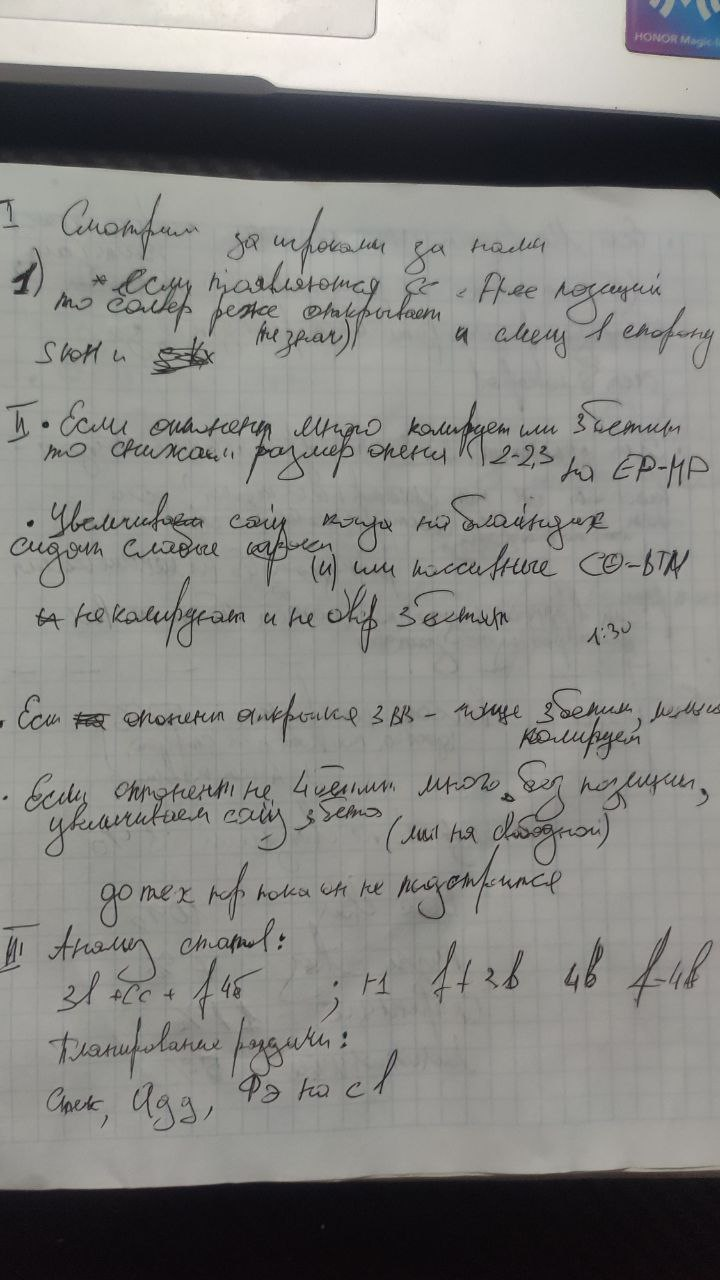 HONOR Magic
I Смотрим за игроками за нами
1) * если появляются СС с
позиций
то солвер реже открывает и смещ в сторону
II • Если оппонент много колирует или 3бетит
то снижаем размер опена 2-2,3 на EP-MP
• Увеличиваем сайз когда на блайндах
сидят слабые игроки (и) или пассивные CO-BTN
не колируют и не 3бетят
1:30
• Если опонент открылся 3BB - чаще 3бетим,
колируем
• Если оппонент не 4бетит много без позиции,
увеличиваем сайз 3бета
до тех пор пока он не подстроится
III Анализ статов:
3b + cc + f4б ; H1 f f 3b 4b f-4b
Планирование раздачи:
Стек, Адд, ФЭ на сb